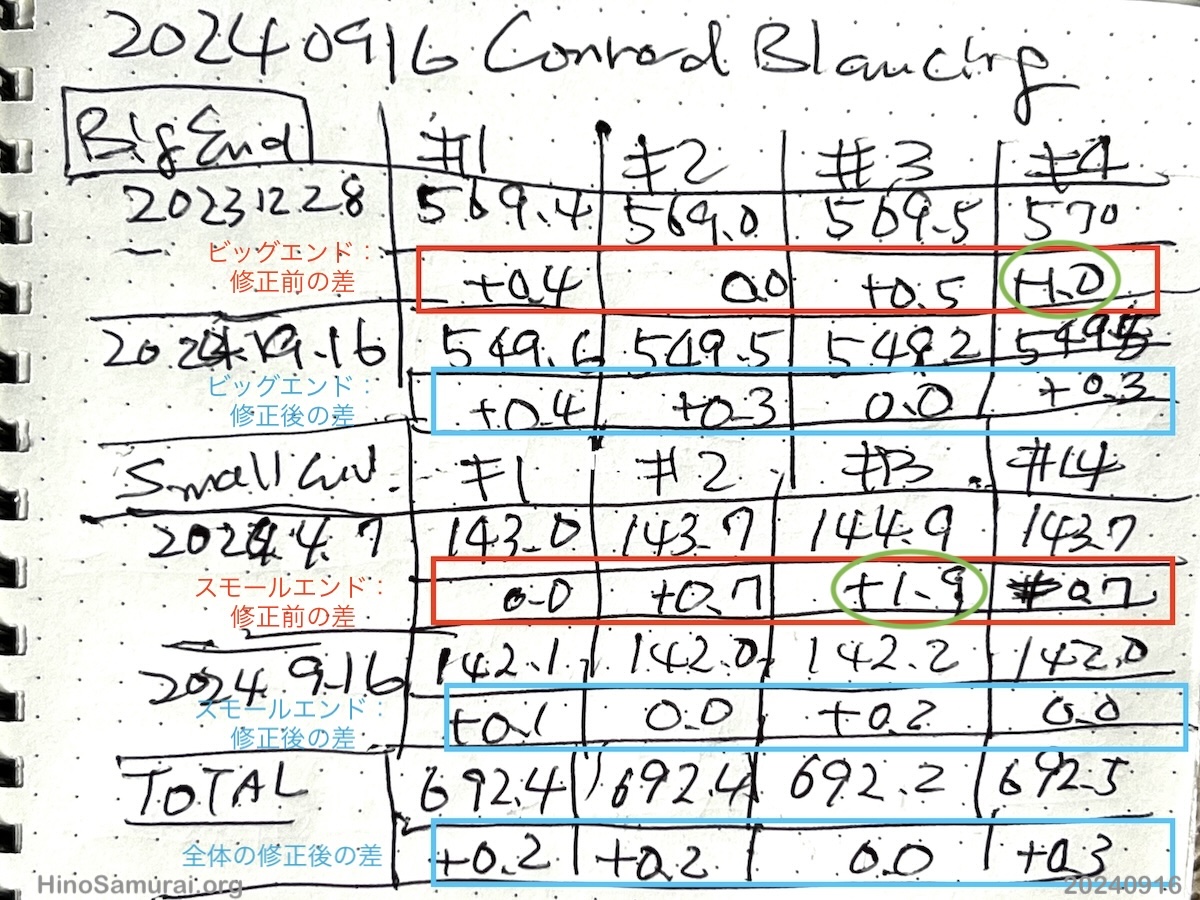 20240916 Conrod Blancing
Big End #1 #2 #3 #4
20231228 569.4 569.0 569.5 570
ビッグエンド：
修正前の差 +0.4 0.0 +0.5 +1.0
2024.9.16 549.6 549.5 548.2
ビッグエンド：
修正後の差 +0.4 +0.3 0.0 +0.3
Small #1 #2 #3 #4
2024.4.7 143.0 143.7 144.9 143.7
スモールエンド：
修正前の差 0.0 +0.7 +1.9 0.7
2024.9.16 142.1 142.0 142.2 142.0
スモールエンド：
修正後の差 +0.1 0.0 +0.2 0.0
TOTAL 692.4 692.4 692.2 692.5
全体の修正後の差 +0.2 +0.2 0.0 +0.3
HinoSamurai.org 20240916